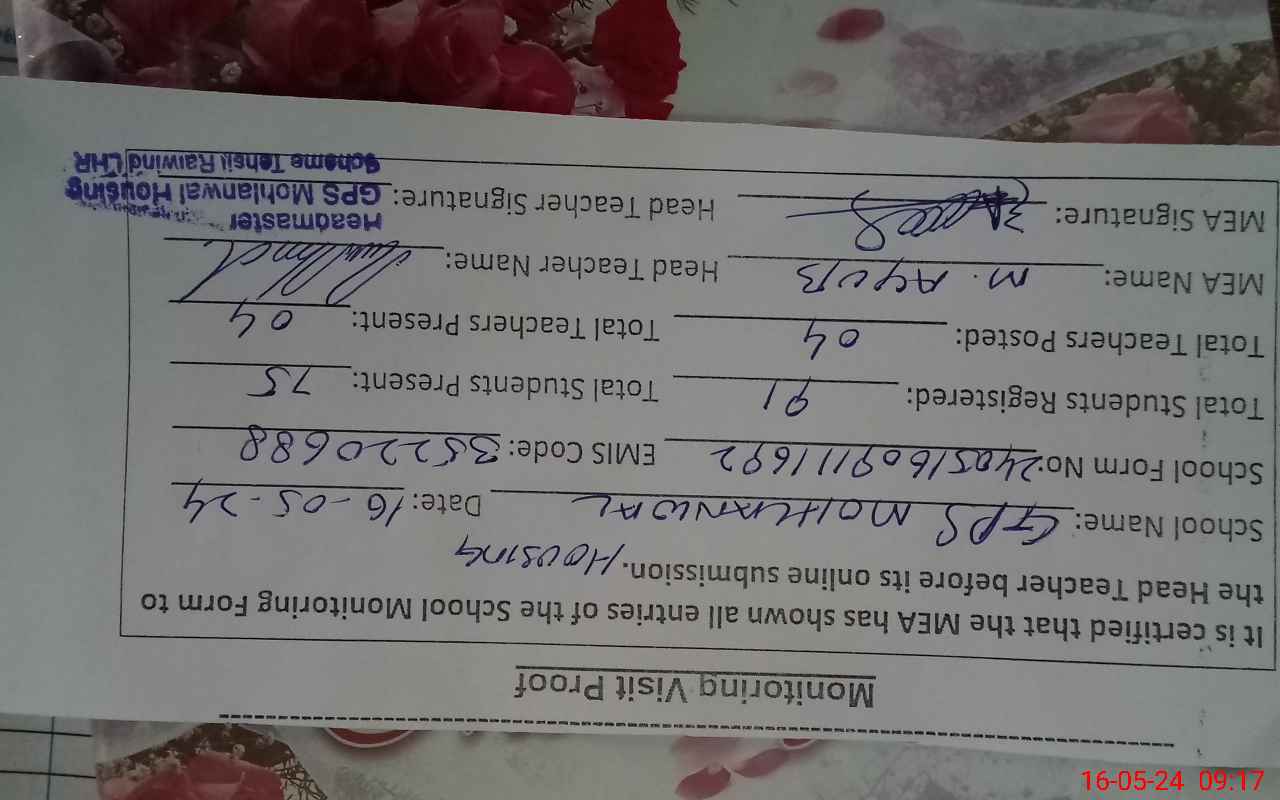 Monitoring Visit Proof
It is certified that the MEA has shown all entries of the School Monitoring Form to
the Head Teacher before its online submission. Housing
School Name: GPS MOHLANWAL Date: 16-05-24
School Form No: 24051609111692 EMIS Code: 35220688
Total Students Registered: 91 Total Students Present: 75
Total Teachers Posted: 04 Total Teachers Present: 04
MEA Name: M. AYUB Head Teacher Name:
MEA Signature: Head Teacher Signature:
Headmaster
GPS Mohlanwal Housing
Scheme Tehsil Raiwind LHR
16-05-24 09:17